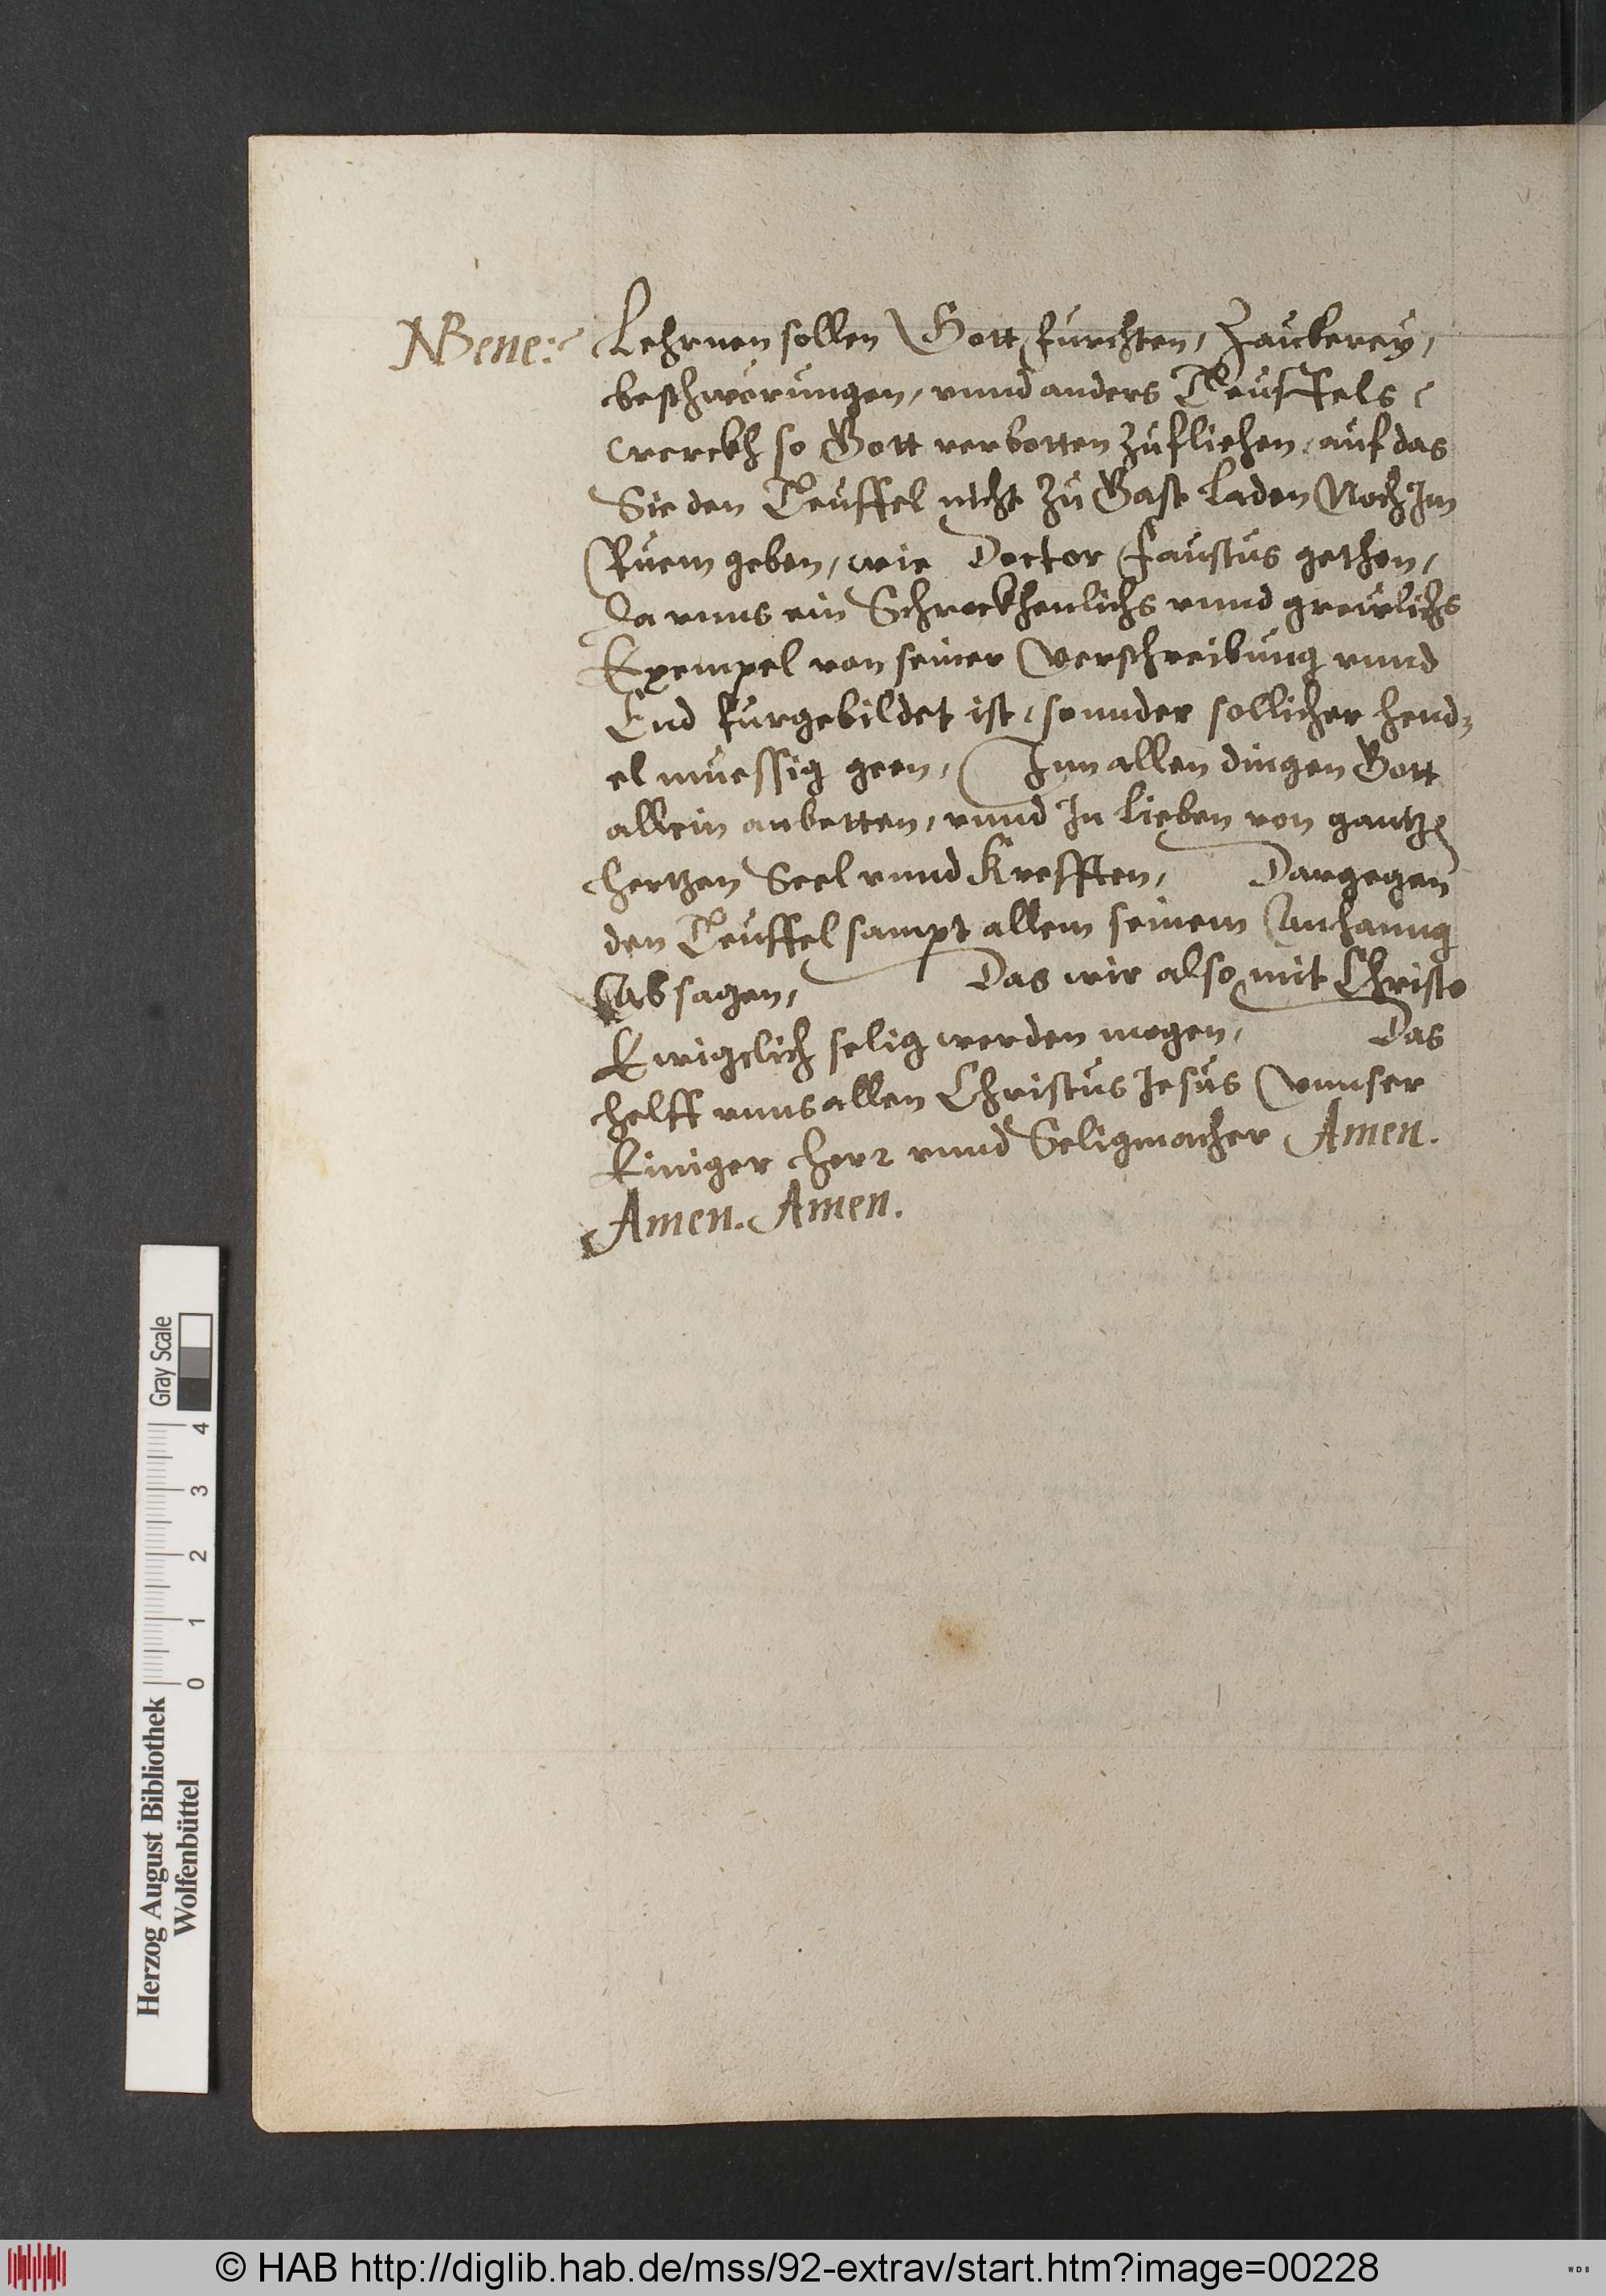 NBene:
Lehrnen sollen Gott furchten, Zauberey,
beschwörungen, vnnd anders Teuffels
werckh so Gott verbotten Zufliehen, auf das
Sie den Teuffel nicht Zu Gast Laden Noch Im
Ruem geben, wie Doctor Faustus gethon,
da vnns ein Schrockhenlichs vnnd grewlichs
Exempel von seiner Verschreibung vnnd
End furgebildet ist, sonnder sollicher hend-
el muessig geen, Inn allen dingen Gott
allein anbetten, vnnd In Lieben von gantzem
hertzen Seel vnnd Krefften, Dargegen
den Teuffel sampt allem seinem Anhanng
Absagen, Das wir also mit Christo
Ewigclich selig werden mogen, Das
helff vnns allen Christus Jesus Vnnser
Einiger herr vnnd Seligmacher Amen.
Amen. Amen.
Herzog August Bibliothek
Wolfenbüttel
0 1 2 3 4
Gray Scale
© HAB http://diglib.hab.de/mss/92-extrav/start.htm?image=00228
WDB